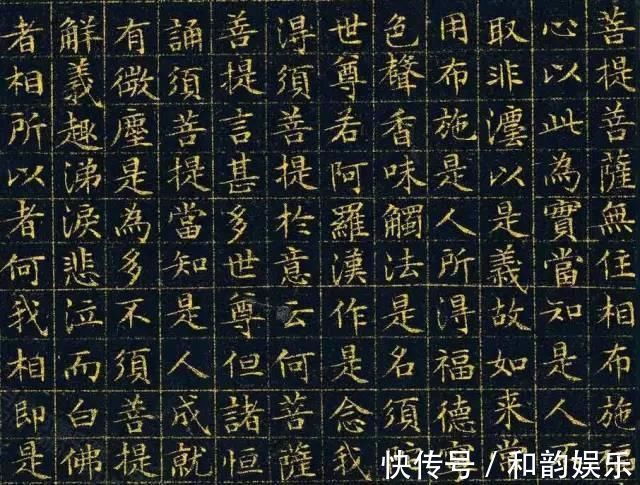 菩提菩薩無住相布施福
心以此為實當知是人
取非灋以是義故如来常
用布施是人所淂福德寧
色聲香味觸法是名須
世尊若阿羅漢作是念我
淂須菩提於意云何菩薩
菩提言甚多世尊但諸恒
誦須菩提當知是人成就
有微塵是為多不須菩提
解義趣涕淚悲泣而白佛
者相所以者何我相即是
快传号／和韵娱乐